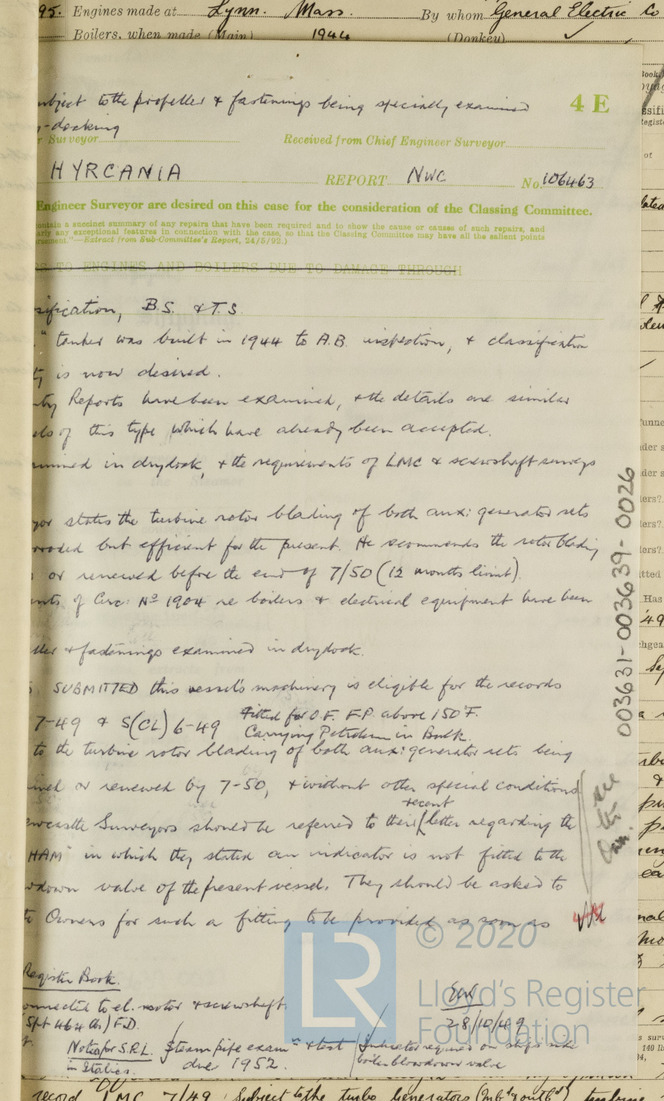 95. Engines made at Lynn. Mass. By whom General Electric Co
Boilers, when made (Main) 1944 (Donkey)
subject to the propeller & fastenings being specially examined
-docking
4 E
r Surveyor Received from Chief Engineer Surveyor
HYRCANIA REPORT NWC No. 106463
Engineer Surveyor are desired on this case for the consideration of the Classing Committee.
ontain a succinct summary of any repairs that have been required and to show the cause or causes of such repairs, and
arly any exceptional features in connection with the case, so that the Classing Committee may have all the salient points
—Extract from Sub-Committee's Report, 24/5/92.)
TO ENGINES AND BOILERS DUE TO DAMAGE THROUGH
sification, B.S. & T.S.
" tanker was built in 1944 to A.B. inspection, & classification
is now desired.
Reports have been examined, & the details are similar
els of this type which have already been accepted.
in drydock, & the requirements of LMC & screwshaft surveys
yor states the turbine rotor blading of both aux: generator sets
but efficient for the present. He recommends the rotor blading
or renewed before the end of 7/50 (12 months limit).
nts of Circ: No 1904 re boilers & electrical equipment have been
ller & fastenings examined in drydock.
SUBMITTED this vessel's machinery is eligible for the records
7-49 & S(CL) 6-49 Fitted for O.F. F.P. above 150°F.
Carrying Petroleum in Bulk.
to the turbine rotor blading of both aux: generator sets being
or renewed by 7-50, & without other special conditions
recent
ewcastle Surveyors should be referred to their letter regarding the
HAM" in which they stated an indicator is not fitted to the
wdown valve of the present vessel. They should be asked to
Owners for such a fitting to be provided as soon as
see
003631-003639-0026
© 2020
Lloyd's Register
Foundation
LR
Register Book.
onnected to el. motor & screwshaft.
Spt 464 lb.) F.D.
28/10/49
Notes for S.R.L. Steam pipe exam & test Indicator required on ship's side
in Statics. due 1952. boiler blowdown valve
record LMC 7/49 Subject to the turbo generators